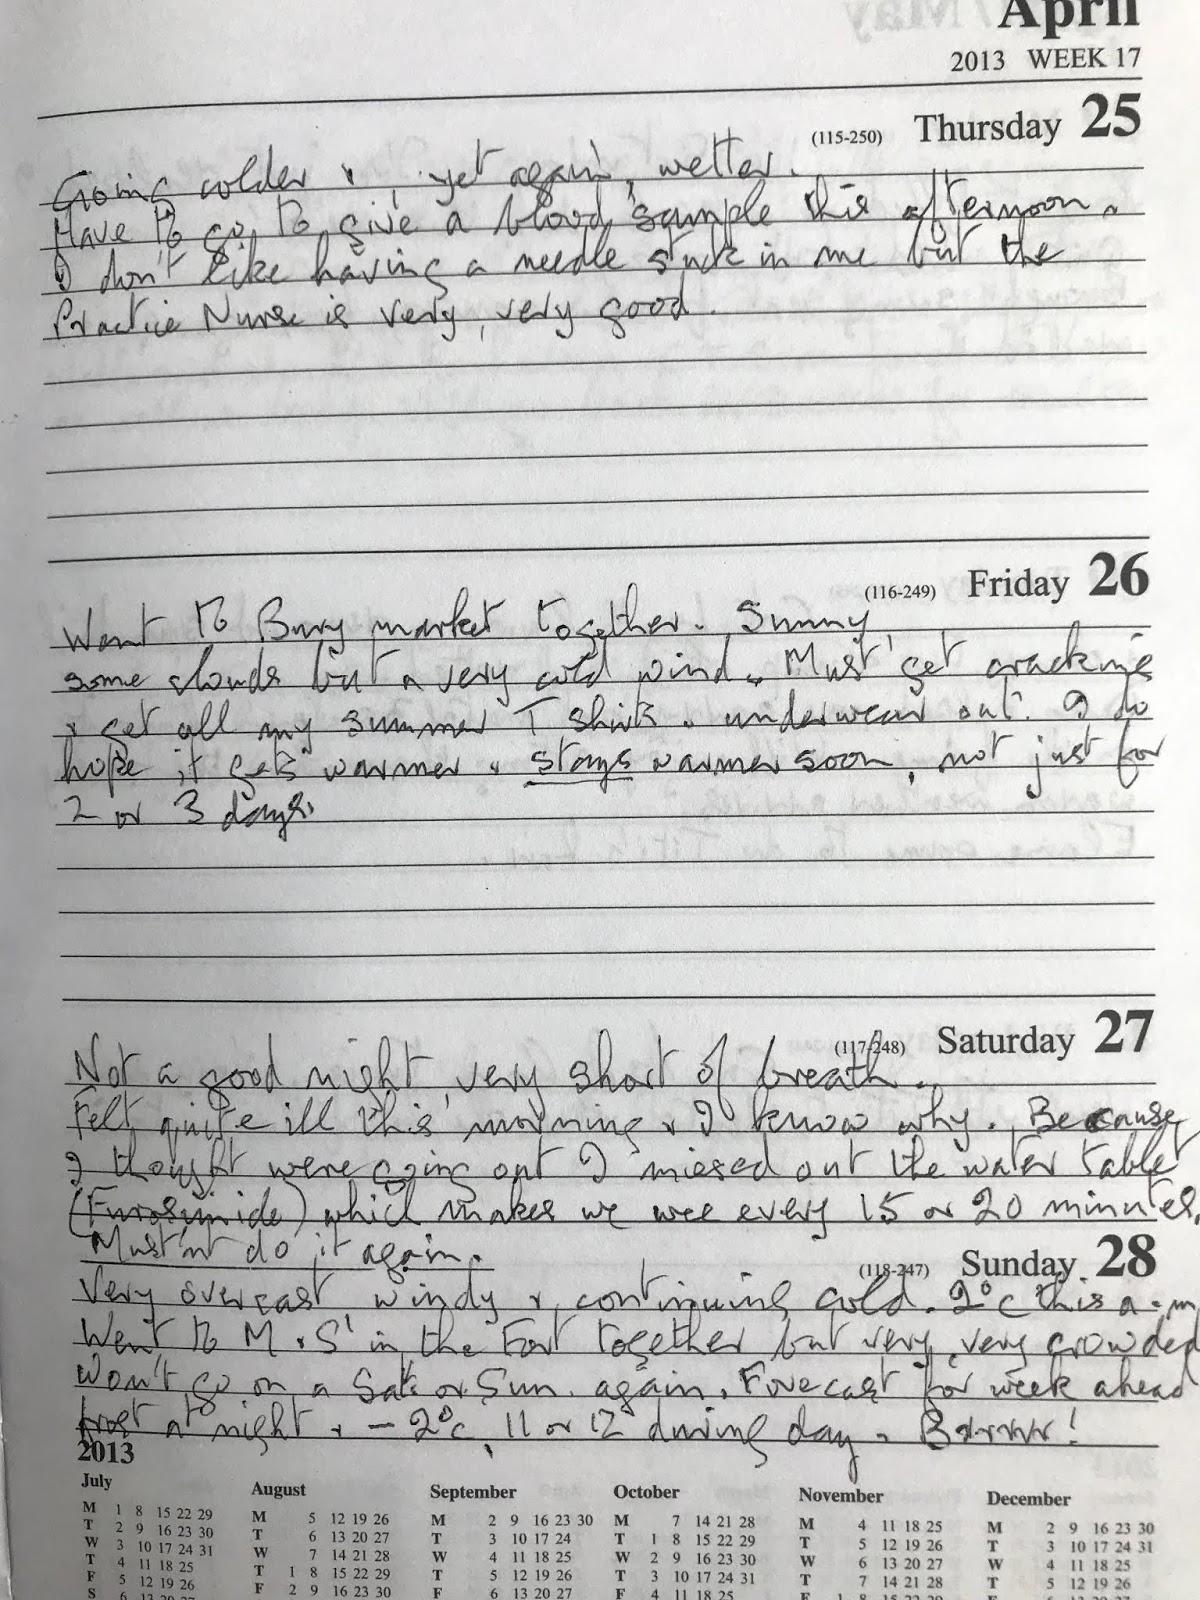 April
2013 WEEK 17
(115-250) Thursday 25
Going colder &, yet again, wetter.
Have to go to give a blood sample this afternoon.
I don't like having a needle stuck in me but the
Practice Nurse is very, very good.
(116-249) Friday 26
Went to Bury market together. Sunny
some clouds but a very cold wind. Must get cracking
& get all my summer T shirts & underwear out. I do
hope it gets warmer & stays warmer soon, not just for
2 or 3 days.
(117-248) Saturday 27
Not a good night, very short of breath.
Felt quite ill this morning & I know why. Because
I thought were going out I missed out the water tablet
(Furosimide) which makes me wee every 15 or 20 minutes.
Must'nt do it again.
(118-247) Sunday 28
Very overcast, windy &, continuing cold. 2°c this a.m
Went to M & S in the Fort together but very, very crowded
Won't go on a Sat. or Sun. again. Forecast for week ahead
frost at night & -2°c, 11 or 12° during day. Brrrrr!
2013
July August September October November December
M 1 8 15 22 29 M 5 12 19 26 M 2 9 16 23 30 M 7 14 21 28 M 4 11 18 25 M 2 9 16 23 30
T 2 9 16 23 30 T 6 13 20 27 T 3 10 17 24 T 1 8 15 22 29 T 5 12 19 26 T 3 10 17 24 31
W 3 10 17 24 31 W 7 14 21 28 W 4 11 18 25 W 2 9 16 23 30 W 6 13 20 27 W 4 11 18 25
T 4 11 18 25 T 1 8 15 22 29 T 5 12 19 26 T 3 10 17 24 31 T 7 14 21 28 T 5 12 19 26
F 5 12 19 26 F 2 9 16 23 30 F 6 13 20 27 F 4 11 18 25 F 1 8 15 22 29
S 6 13 20 27